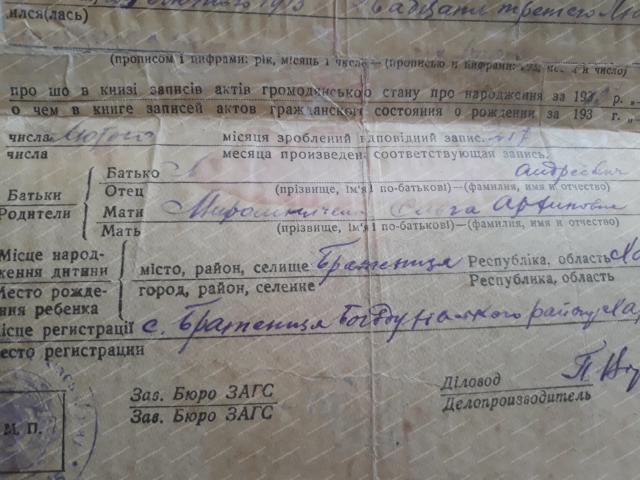 лютого 193
Двадцать третего Лю
ился(лась)
(прописом і цифрами: рік, місяць і число — (прописью и цифрами: год, мес. и число)
про що в книзі записів актів громодянського стану про народження за 193 р.
о чем в книге записей актов гражданского состояния о рождении за 193 г. „
числа Лютого місяця зроблений ідповідний запис. 17
числа месяца произведен соответствующая запись.
Батьки
Родители
Батько Андреевич
Отец (прізвище, ім'я і по-батькові)—(фамилия, имя и отчество)
Мати Ольга Архиповна
Мать (прізвище, ім'я і по-батькові)—(фамилия, имя и отчество)
Місце народ-
ження дитини
Место рожде-
ния ребенка
місто, район, селище Братеница Республіка, область Ха
город, район, селение Республика, область
ісце регистрації с. Братеница Богодуховского району Хар
есто регистрации
Зав. Бюро ЗАГС
Зав. Бюро ЗАГС
Діловод
Делопроизводитель
М. П.